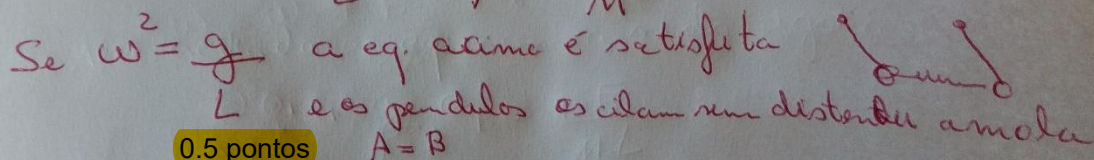 M
Se ω² = g/L a eq. acima é satisfeita
e os pendulos oscilam sem distender a mola
0.5 pontos A = B